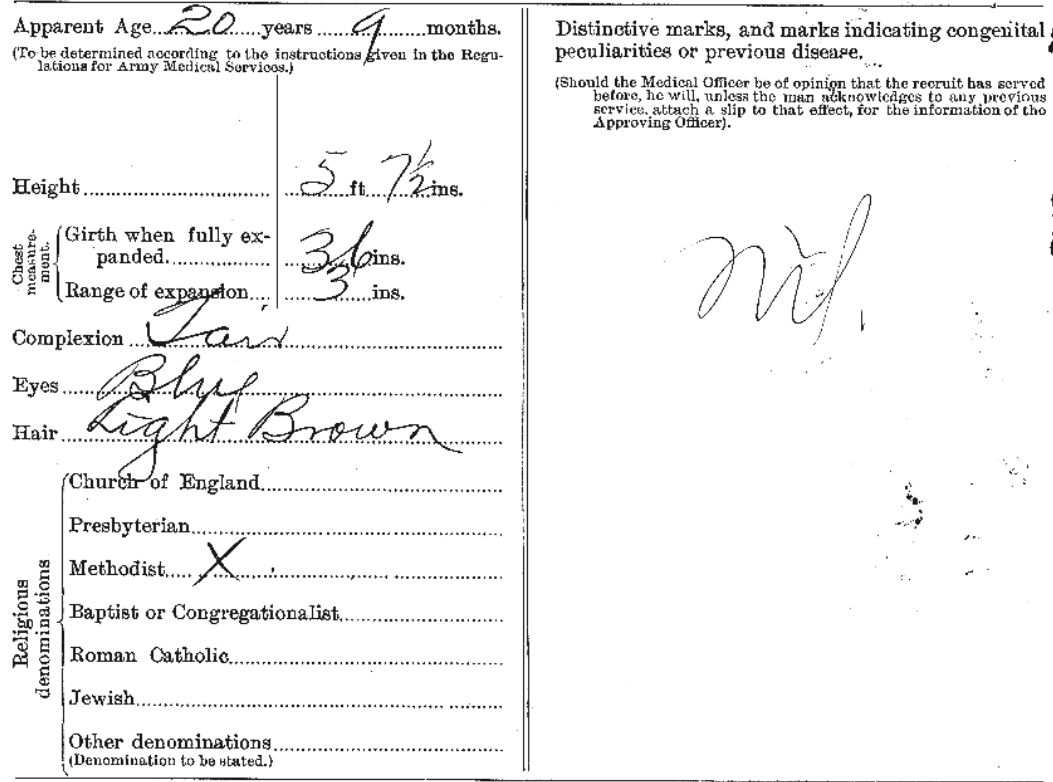 Apparent Age 20 years 9 months.
(To be determined according to the instructions given in the Regu-
lations for Army Medical Services.)
Height 5 ft 7½ ins.
Chest measure-ment.
Girth when fully ex-
panded 36 ins.
Range of expansion 3 ins.
Complexion Fair
Eyes Blue
Hair Light Brown
Religious denominations
Church of England
Presbyterian
Methodist X
Baptist or Congregationalist
Roman Catholic
Jewish
Other denominations
(Denomination to be stated.)
Distinctive marks, and marks indicating congenital
peculiarities or previous disease.
(Should the Medical Officer be of opinion that the recruit has served
before, he will, unless the man acknowledges to any previous
service, attach a slip to that effect, for the information of the
Approving Officer).
Nil.